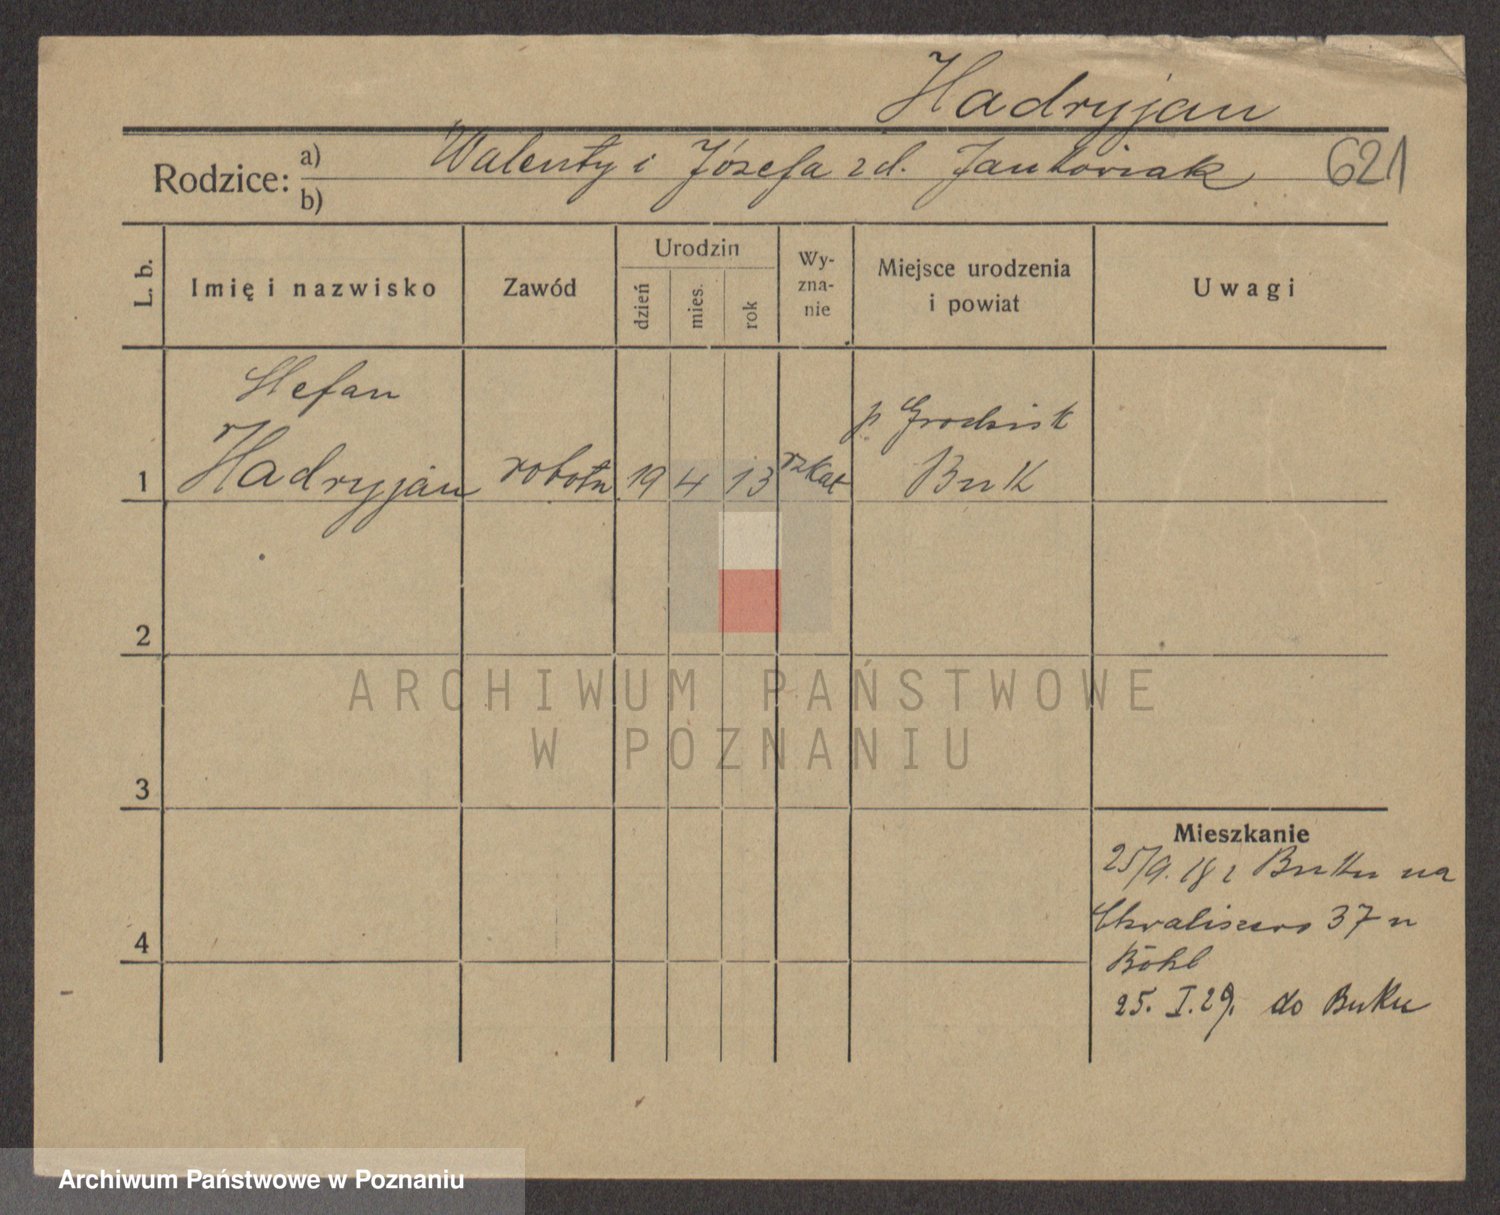 Hadryjan
Rodzice: a) b)
Walenty i Józefa zd. Jankowiak
621
L. b.
Imię i nazwisko
Zawód
Urodzin
dzień
mies.
rok
Wy-
zna-
nie
Miejsce urodzenia
i powiat
Uwagi
1
Stefan
Hadryjan
robotn
19
4
13
rzkat
p. Grodzisk
Buk
2
3
4
Mieszkanie
25/9. 18 z Buku na
Chwaliszewo 37 u
Böhl
25. I. 29. do Buku
ARCHIWUM PAŃSTWOWE
W POZNANIU
Archiwum Państwowe w Poznaniu